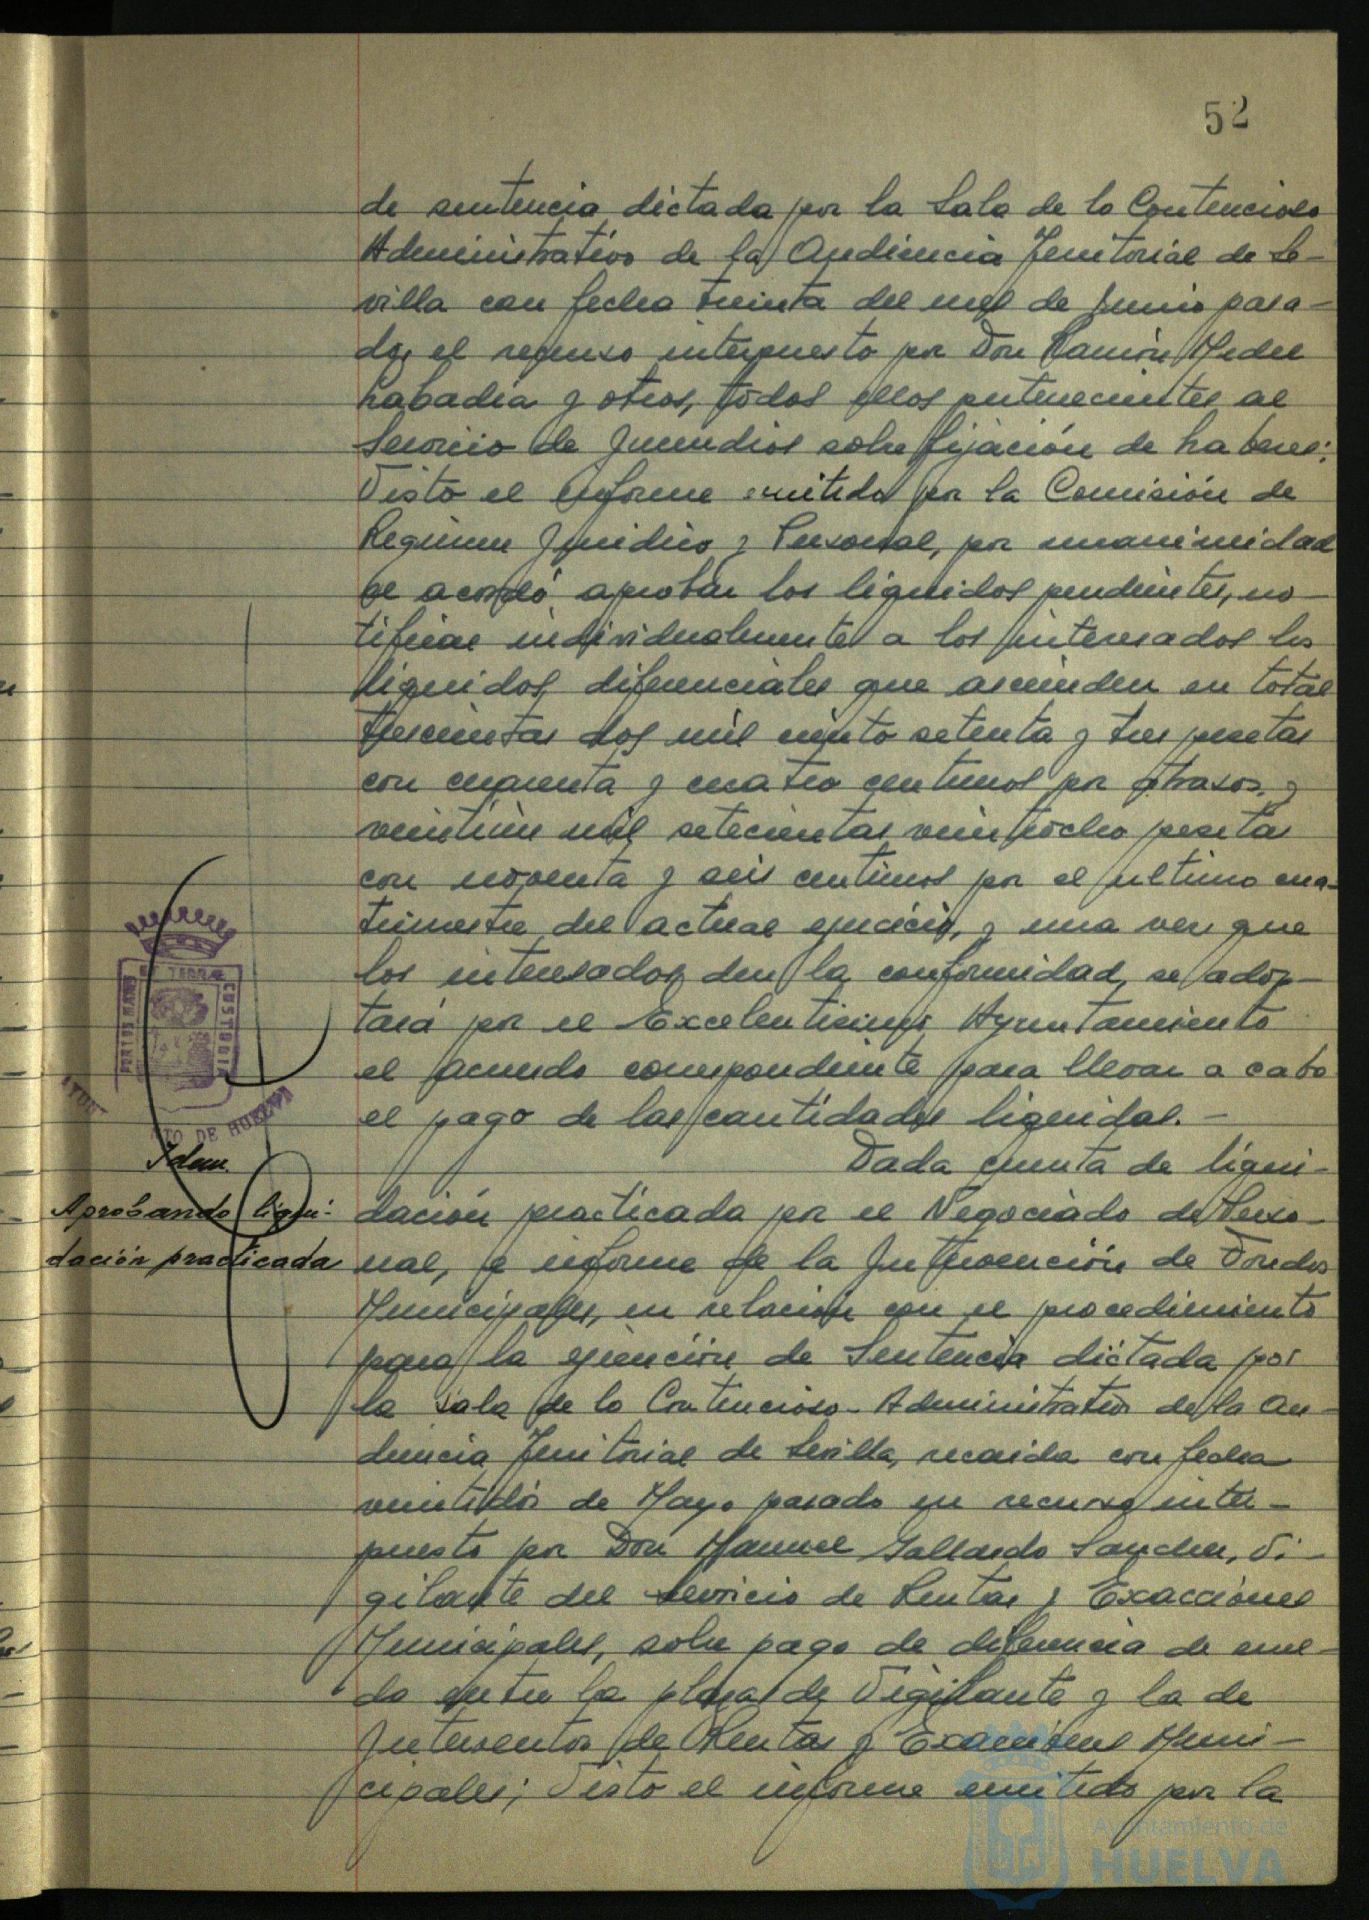 52
de sentencia dictada por la Sala de lo Contencioso
Administrativo de la Audiencia Territorial de Se-
villa con fecha treinta del mes de Junio pasa-
do, el recurso interpuesto por Don Ramón Medel
Labadía y otros, todos ellos pertenecientes al
Servicio de Incendios sobre fijación de haberes;
Visto el informe emitido por la Comisión de
Regimen Juridico y Personal, por unanimidad
se acordó aprobar los liquidos pendientes, no-
tificar individualmente a los interesados los
liquidos diferenciales que ascienden en total
trescientas dos mil ciento setenta y tres pesetas
con cuarenta y cuatro centimos por atrasos, y
mil setecientas veintiocho pesetas
con noventa y seis centimos por el ultimo cua-
trimestre del actual ejercicio, y una vez que
los interesados den la conformidad, se adop-
tará por el Excelentisimo Ayuntamiento
el acuerdo correspondiente para llevar a cabo
el pago de las cantidades liquidas.-
PORTUS MARIS ET TERRAE CUSTODIA
AYUNTAMIENTO DE HUELVA
Idem.
Aprobando liqui-
dación practicada
Dada cuenta de liqui-
dación practicada por el Negociado de Perso-
nal, e informe de la Intervención de Fondos
Municipales, en relación con el procedimiento
para la ejecución de Sentencia dictada por
la Sala de lo Contencioso-Administrativo de la Au-
diencia Territorial de Sevilla, recaida con fecha
veintidós de Mayo pasado en recurso inter-
puesto por Don Manuel Gallardo Sanchez, Vi-
gilante del Servicio de Rentas y Exacciones
Municipales, sobre pago de diferencia de suel-
do entre la plaza de Vigilante y la de
Interventor de Rentas y Exacciones Muni-
cipales; Visto el informe emitido por la
Ayuntamiento de
HUELVA